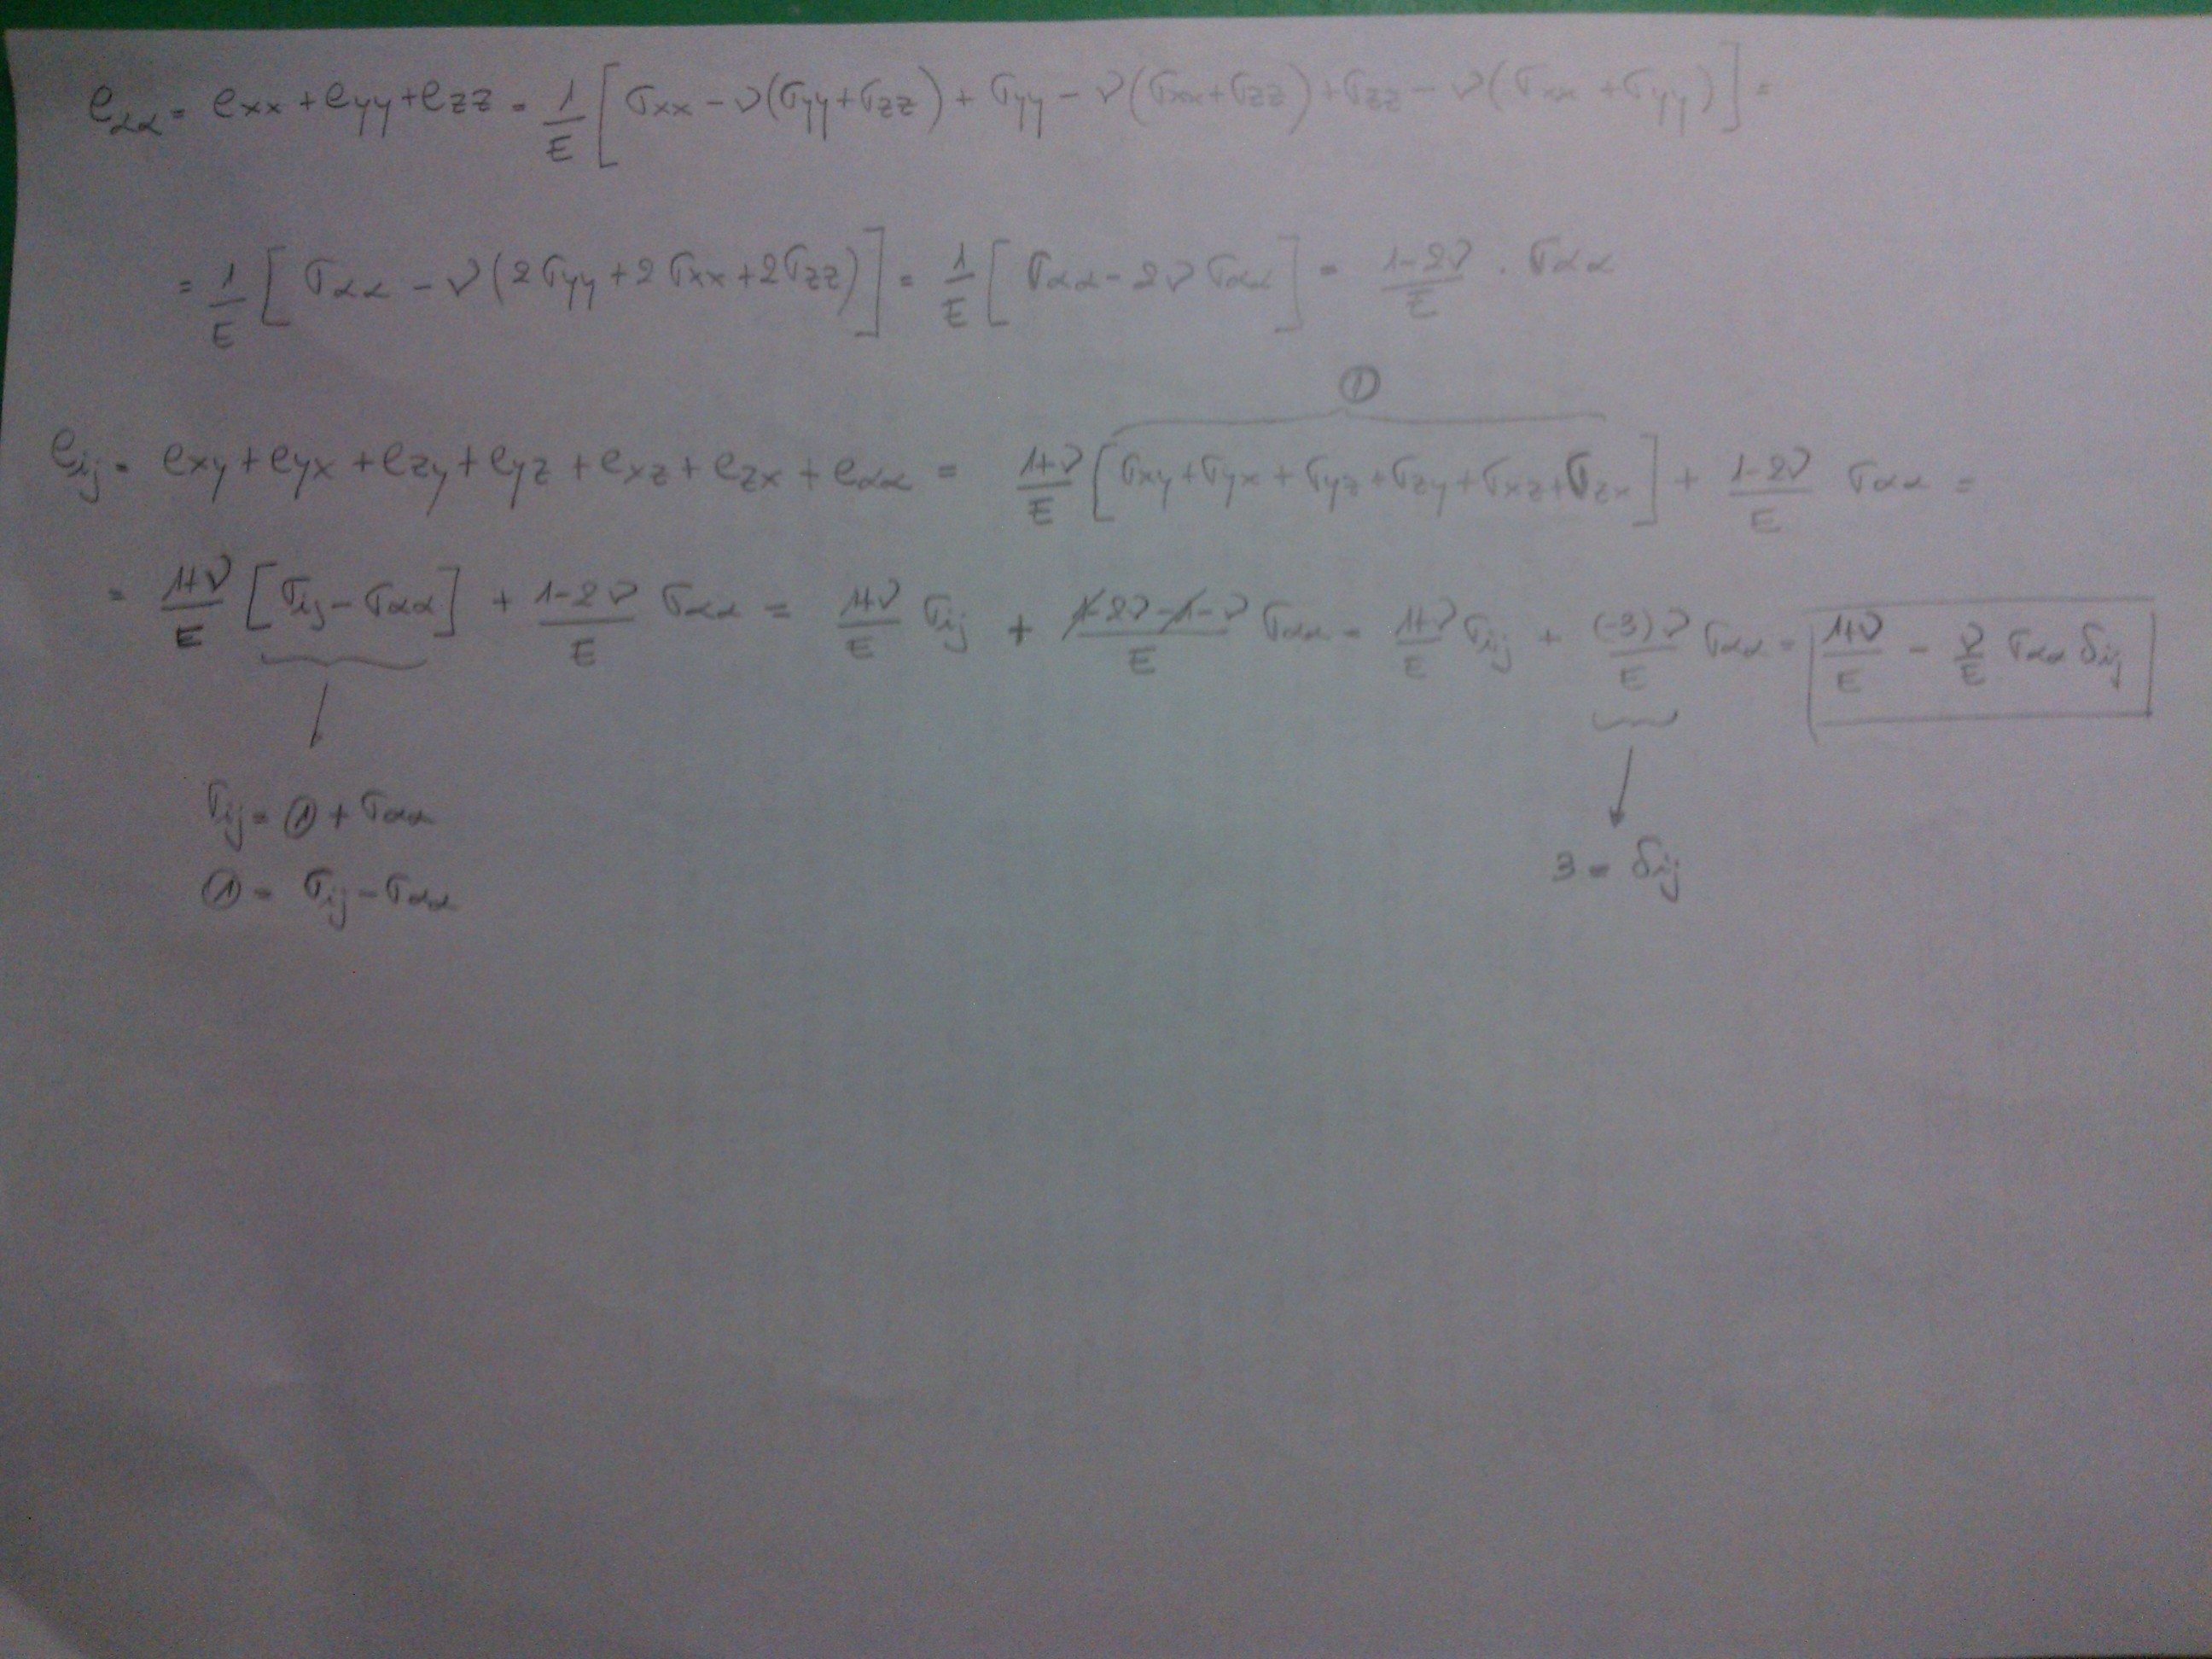 eαα = exx + eyy + ezz = 1/E [σxx - ν(σyy + σzz) + σyy - ν(σxx + σzz) + σzz - ν(σxx + σyy)] =
= 1/E [σαα - ν(2σyy + 2σxx + 2σzz)] = 1/E [σαα - 2νσαα] = 1-2ν/E · σαα
①
eij = exy + eyx + ezy + eyz + exz + ezx + eαα = 1+ν/E [σxy + σyx + σyz + σzy + σxz + σzx] + 1-2ν/E σαα =
= 1+ν/E [σij - σαα] + 1-2ν/E σαα = 1+ν/E σij + 1-2ν-1-ν/E σαα = 1+ν/E σij + (-3)ν/E σαα = 1+ν/E - ν/E σαα δij
σij = ① + σαα
① = σij - σαα
3 = δij